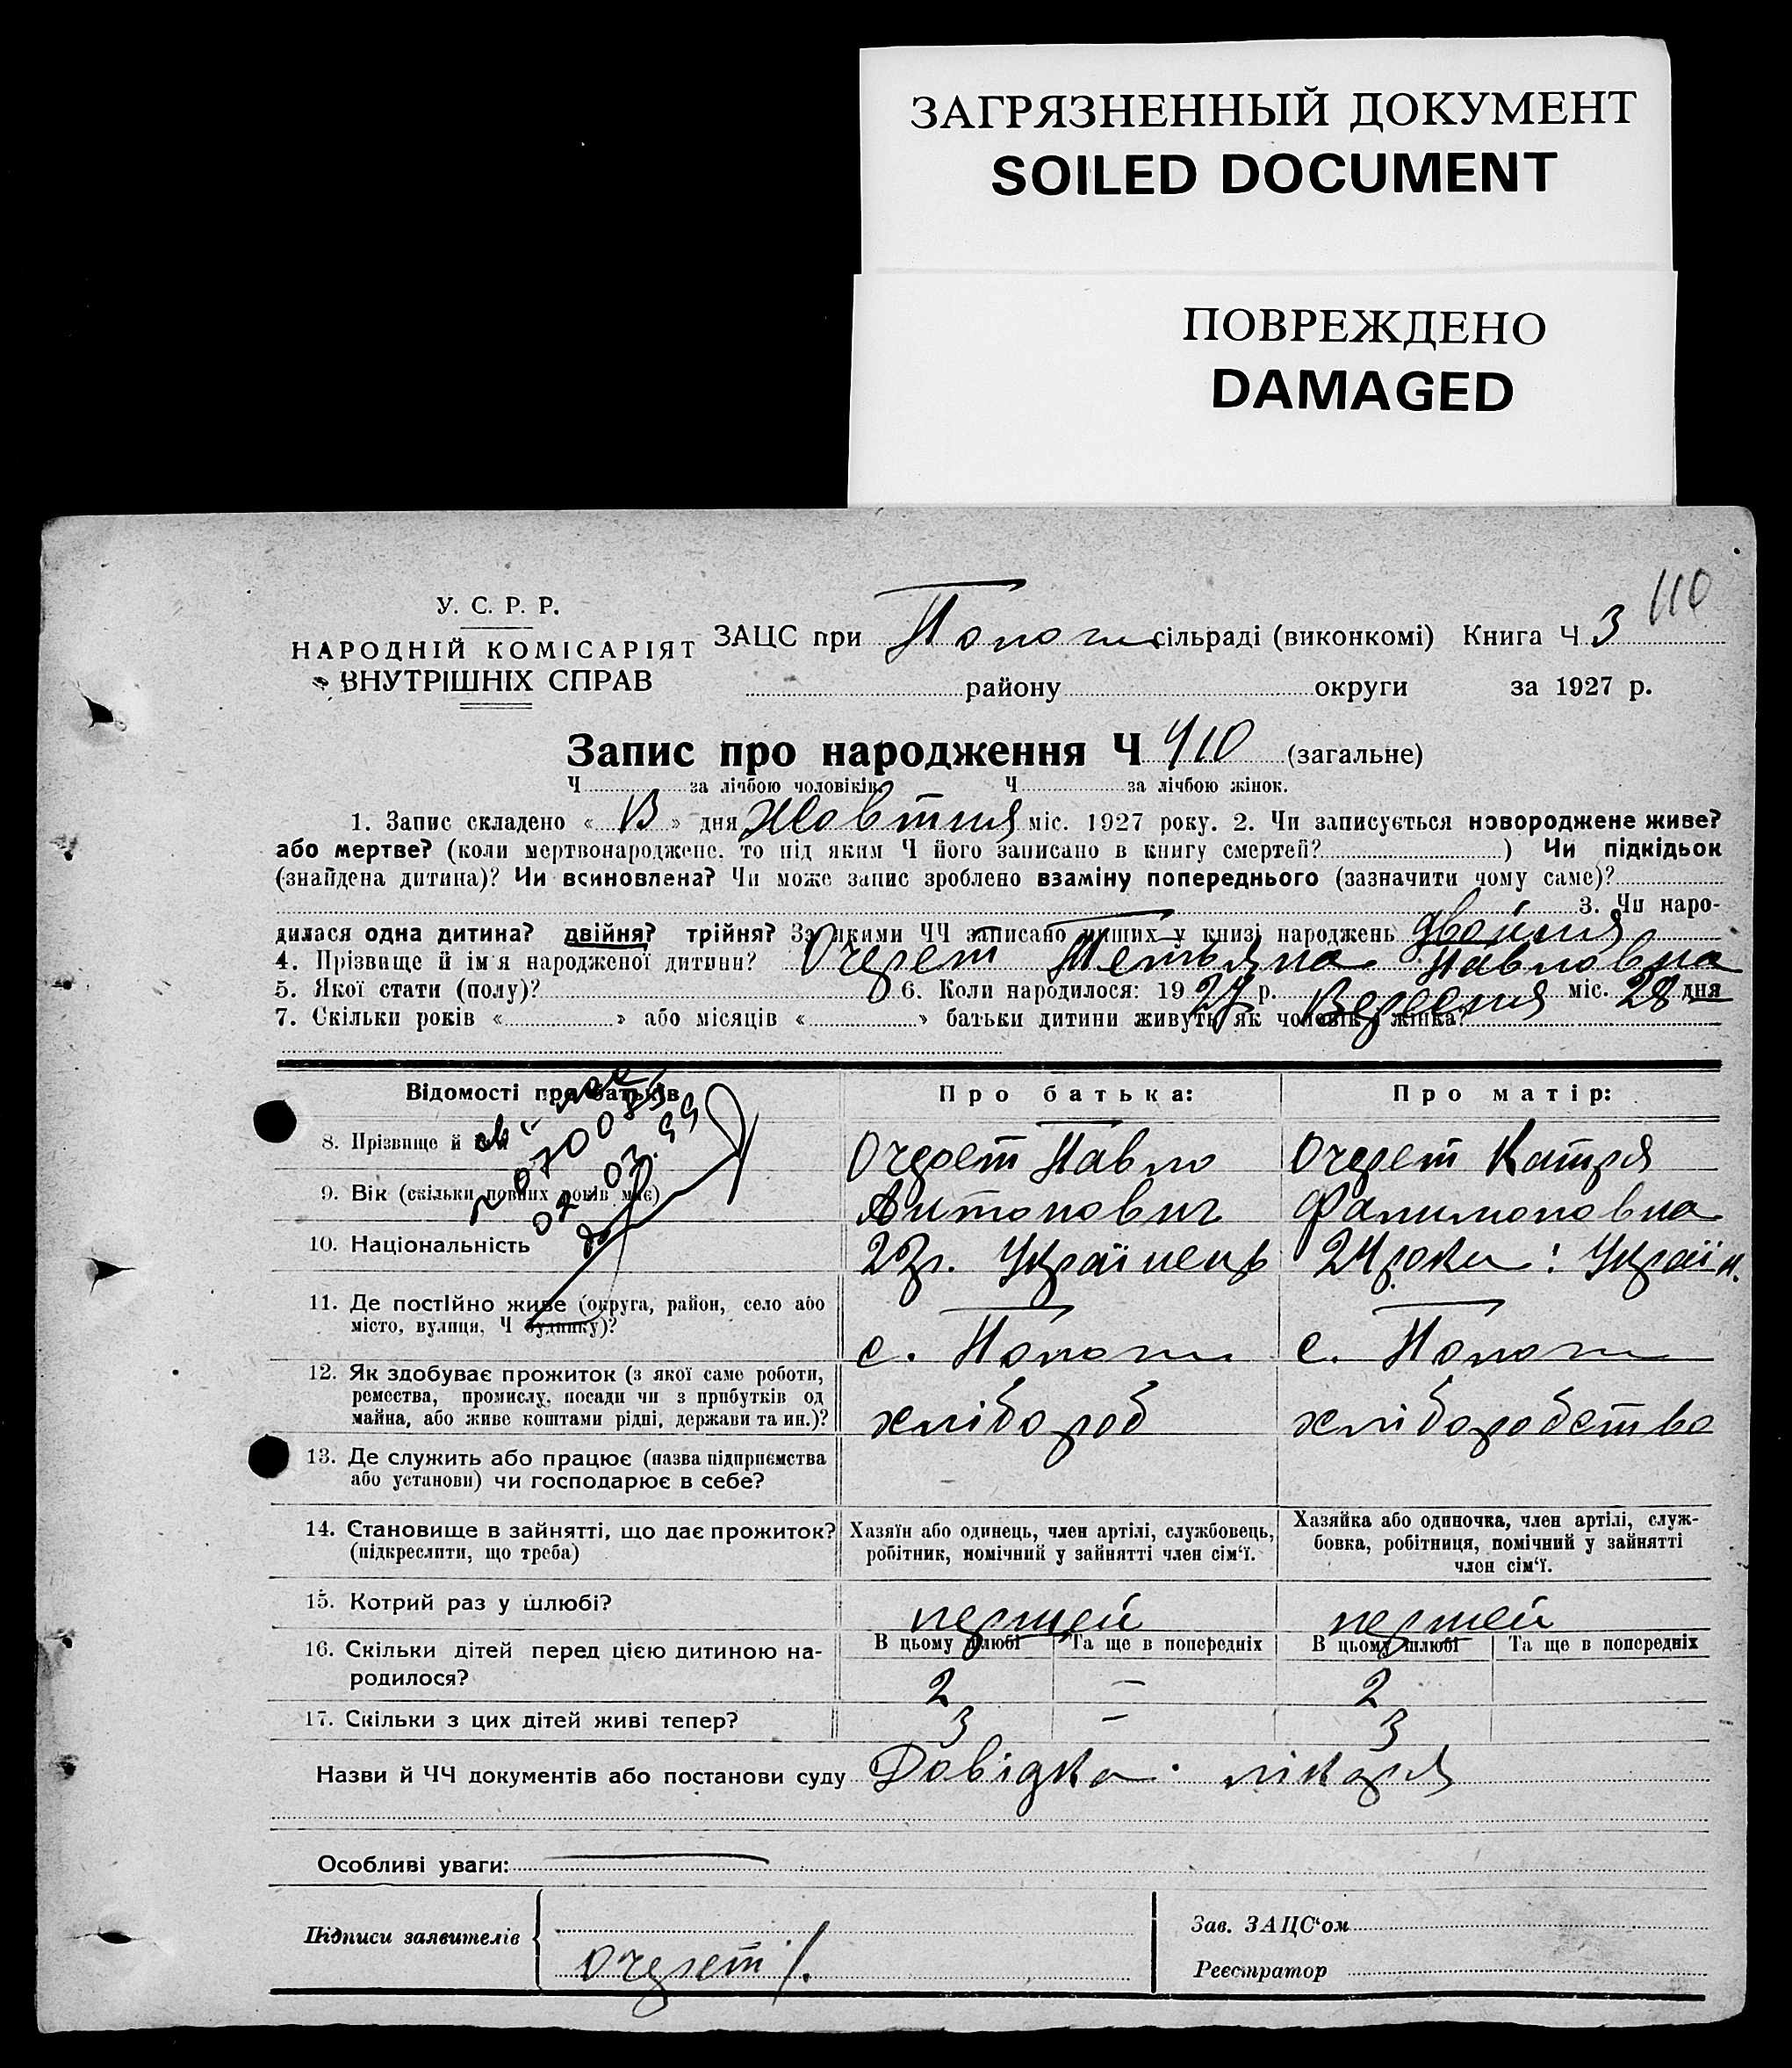 ЗАГРЯЗНЕННЫЙ ДОКУМЕНТ
SOILED DOCUMENT
ПОВРЕЖДЕНО
DAMAGED
110
У. С. Р. Р.
НАРОДНІЙ КОМІСАРІЯТ
ВНУТРІШНІХ СПРАВ
ЗАЦС при Пологи сільраді (виконкомі) Книга Ч 3
району округи за 1927 р.
Запис про народження Ч 410 (загальне)
Ч за лічбою чоловіків. Ч за лічбою жінок.
1. Запис складено « » дня Жовтня міс. 1927 року. 2. Чи записується новороджене живе?
або мертве? (коли мертвонароджене, то під яким Ч його записано в книгу смертей? ) Чи підкідьок
(знайдена дитина)? Чи всиновлена? Чи може запис зроблено взаміну попереднього (зазначити чому саме)?
3. Чи наро-
дилася одна дитина? двійня? трійня? За якими ЧЧ записано инших у книзі народжень двойня
4. Прізвище й ім'я народженої дитини? Очерет Тетьяна Павловна
5. Якої стати (полу)? 6. Коли народилося: 1927 р. Вересня міс. 28 дня
7. Скільки років « » або місяців « » батьки дитини живуть як чоловік і жінка?
Відомості про батьків Про батька: Про матір:
8. Прізвище й ім'я Очерет Павло Очерет Катря
9. Вік (скільки повних років має) Антонович Филимоновна
10. Національність 23р. Українець 24 роки: Україн.
07 03. 99
11. Де постійно живе (округа, район, село або
місто, вулиця, Ч будинку)? с. Пологи с. Пологи
12. Як здобуває прожиток (з якої саме роботи,
ремества, промислу, посади чи з прибутків од
майна, або живе коштами рідні, держави та ин.)? хлібороб хліборобство
13. Де служить або працює (назва підприємства
або установи) чи господарює в себе? –
14. Становище в зайнятті, що дає прожиток?
(підкреслити, що треба)
Хазяїн або одинець, член артілі, службовець,
робітник, помічний у зайнятті член сім'ї.
Хазяйка або одиночка, член артілі, служ-
бовка, робітниця, помічний у зайнятті
член сім'ї.
15. Котрий раз у шлюбі? першей першей
В цьому шлюбі Та ще в попередніх В цьому шлюбі Та ще в попередніх
16. Скільки дітей перед цією дитиною на-
родилося? 2 – 2
17. Скільки з цих дітей живі тепер? 3 – 3
Назви й ЧЧ документів або постанови суду Довідка лікаря
Особливі уваги:
Підписи заявителів Очерет
Зав. ЗАЦС'ом
Реєстратор